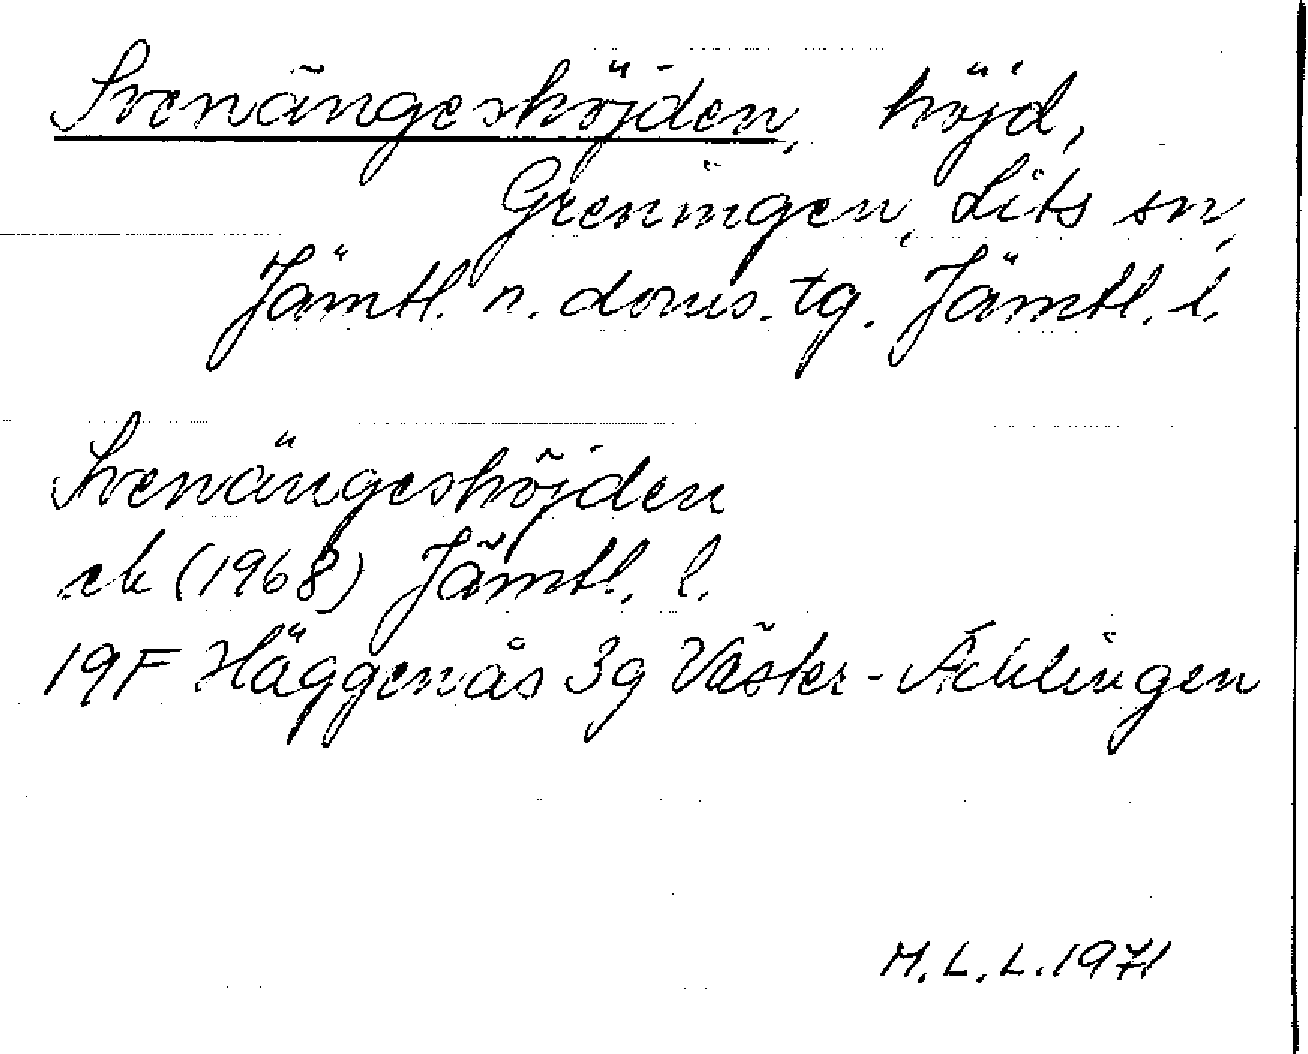 Svenängeshöjden, höjd,
Greningen, Lits sn,
Jämtl. n. doms. tg. Jämtl. l.
Svenängeshöjden
ek (1968) Jämtl. l.
19F Häggenås 3g Väster-Äcklingen
M.L.L. 1971